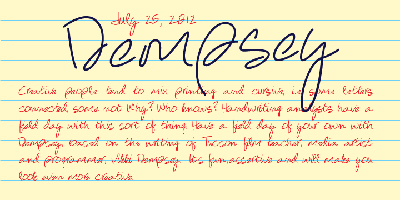 July 25, 2012
Dempsey
Creative people tend to mix printing and cursive, i.e. some letters
connected some not. Why? Who knows? Handwriting analysts have a
field day with this sort of thing. Have a field day of your own with
Dempsey, based on the writing of Tucson film teacher, media artist
and programmer, Vikki Dempsey. It's fun, assertive and will make you
look even more creative.